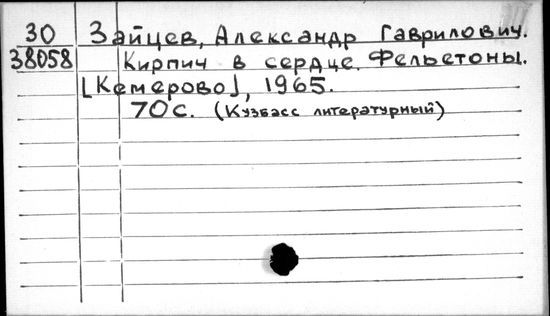 30 Зайцев, Александр Гаврилович.
38058 Кирпич в сердце. Фельетоны.
[Кемерово], 1965.
70с. (Кузбасс литературный)